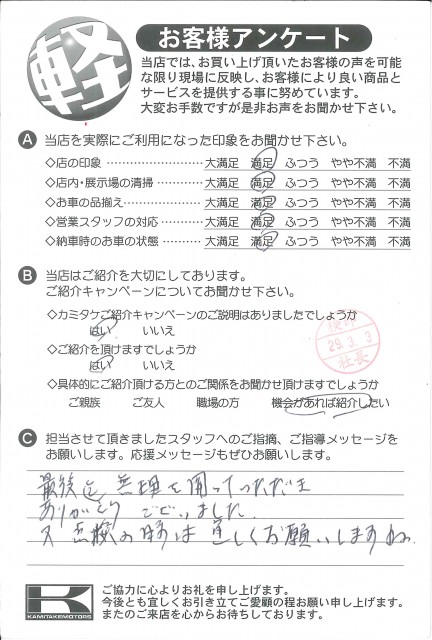 軽
お客様アンケート
当店では、お買い上げ頂いたお客様の声を可能
な限り現場に反映し、お客様により良い商品と
サービスを提供する事に努めています。
大変お手数ですが是非お声をお聞かせ下さい。
A 当店を実際にご利用になった印象をお聞かせ下さい。
◇店の印象 …………………… 大満足 満足 ふつう やや不満 不満
◇店内・展示場の清掃 ………… 大満足 満足 ふつう やや不満 不満
◇お車の品揃え ………………… 大満足 満足 ふつう やや不満 不満
◇営業スタッフの対応 ………… 大満足 満足 ふつう やや不満 不満
◇納車時のお車の状態 ………… 大満足 満足 ふつう やや不満 不満
B 当店はご紹介を大切にしております。
ご紹介キャンペーンについてお聞かせ下さい。
◇カミタケご紹介キャンペーンのご説明はありましたでしょうか
はい いいえ
◇ご紹介を頂けますでしょうか
はい いいえ
◇具体的にご紹介頂ける方とのご関係をお聞かせ頂けますでしょうか
ご親族 ご友人 職場の方 機会があれば紹介したい
検印
29.3.3
社長
C 担当させて頂きましたスタッフへのご指摘、ご指導メッセージを
お願いします。応援メッセージもぜひお願いします。
最後迄 無理を聞いていただき
ありがとう ございました。
又 点検の時は 宜しくお願いしますね
K
KAMITAKEMOTORS
ご協力に心よりお礼を申し上げます。
今後とも宜しくお引き立てご愛顧の程お願い申し上げます。
またのご来店を心からお待ちしております。